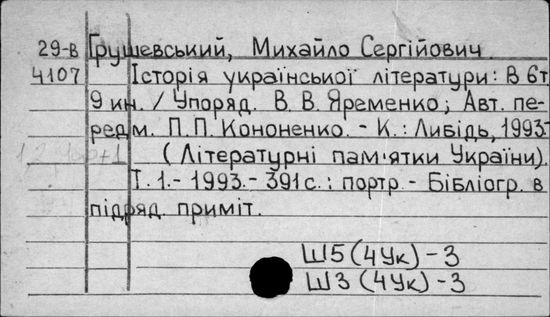 29-В Грушевський, Михайло Сергійович.
4107 Історія української літератури: В 6т
9 кн. / Упоряд. В. В. Яременко; Авт. пе-
редм. П.П. Кононенко. - К.: Либідь, 1993-
(Літературні пам'ятки України).
Т. 1. - 1993. - 391с.: портр. - Бібліогр. в
підряд. приміт.
Ш5(4Ук)-3
Ш3(4Ук)-3